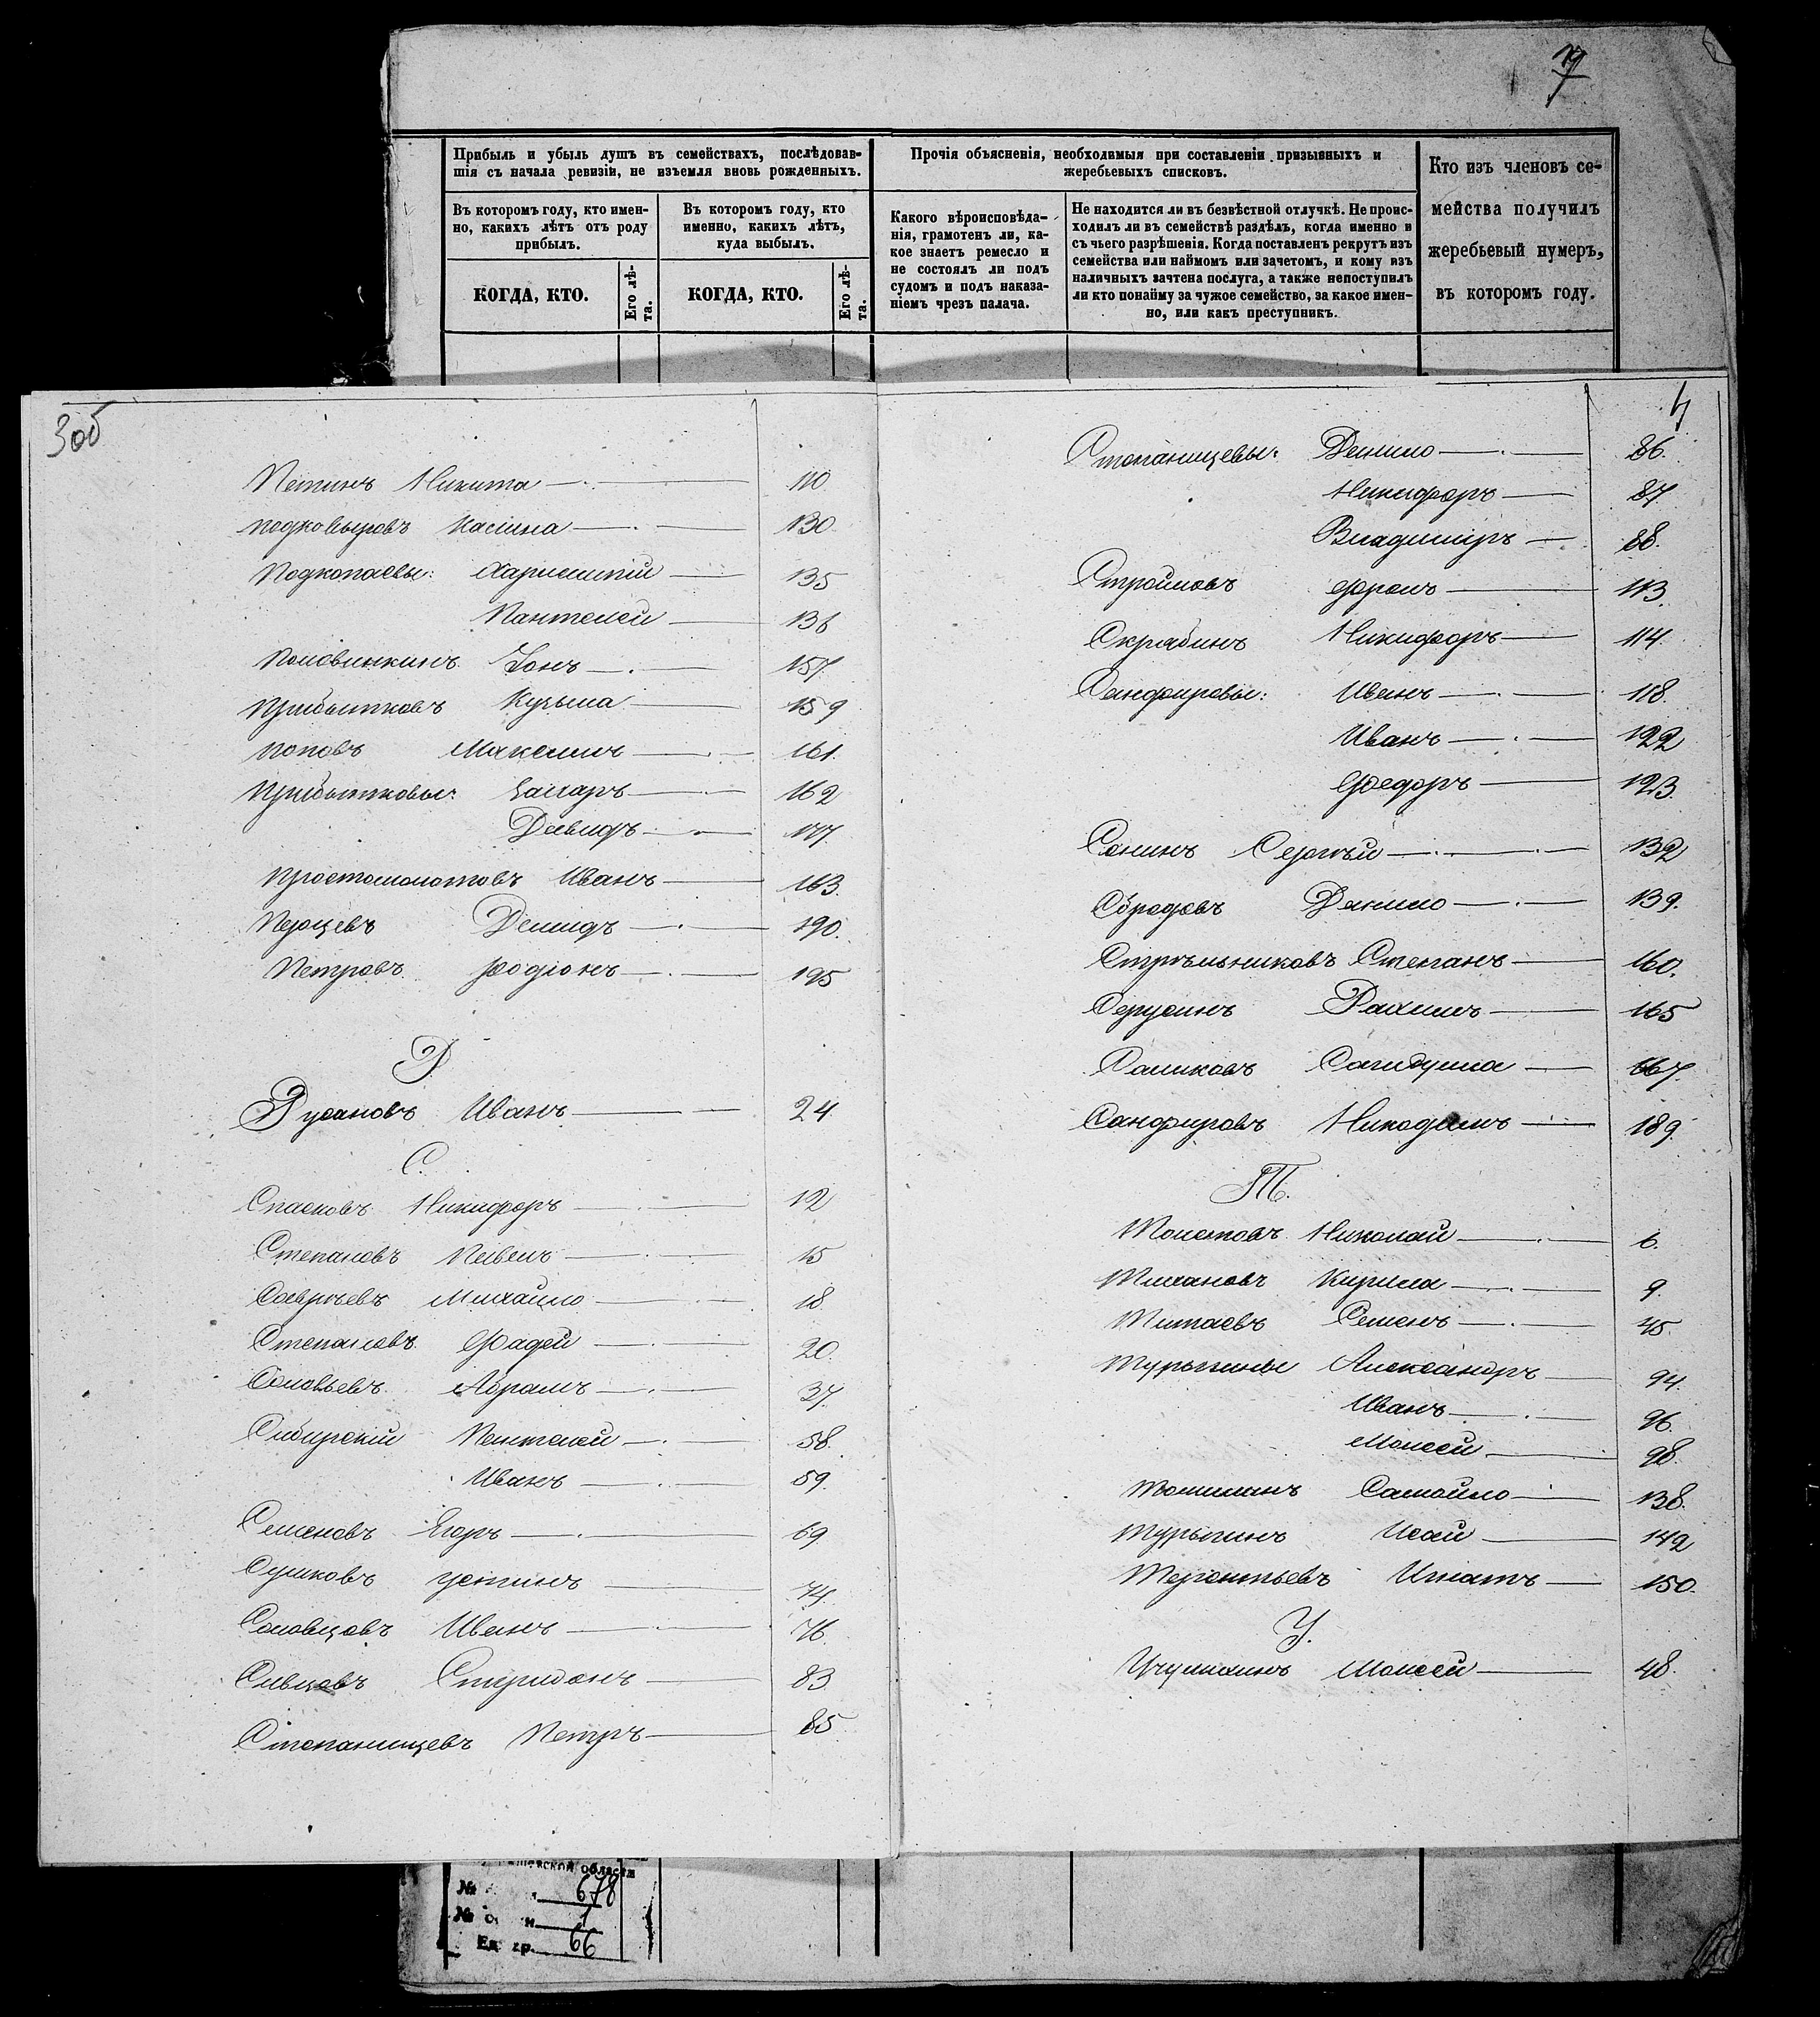 7
Прибыль и убыль душъ въ семействахъ, послѣдовав-
шія съ начала ревизіи, не изъемля вновь рожденныхъ.
Прочія объясненія, необходимыя при составленіи призывныхъ и
жеребьевыхъ списковъ.
Кто изъ членовъ се-
мейства получилъ
жеребьевый нумеръ,
въ которомъ году.
Въ которомъ году, кто имен-
но, какихъ лѣтъ отъ роду
прибылъ.
Въ которомъ году, кто
именно, какихъ лѣтъ,
куда выбылъ.
Какого вѣроисповѣда-
нія, грамотенъ ли, ка-
кое знаетъ ремесло и
не состоялъ ли подъ
судомъ и подъ наказа-
ніемъ чрезъ палача.
Не находится ли въ безвѣстной отлучкѣ. Не проис-
ходилъ ли въ семействѣ раздѣлъ, когда именно и
съ чьего разрѣшенія. Когда поставленъ рекрутъ изъ
семейства или наймомъ или зачетомъ, и кому изъ
наличныхъ зачтена послуга, а также непоступилъ
ли кто понайму за чужое семейство, за какое имен-
но, или какъ преступникъ.
КОГДА, КТО.
Его лѣ-
та.
КОГДА, КТО.
Его лѣ-
та.
3об
Петинъ Никита 110
Подковыровъ Калина 130.
Подкопаевы: Харлампій 135
Пантелей 136
Половинкинъ Іонъ 157.
Прибытковъ Кузьма 159
Поповъ Максимъ 161.
Прибытковы: Захаръ 162
Давидъ 177.
Простомолотовъ Иванъ 163.
Перцевъ Демидъ 190.
Петровъ Родіонъ 195
Р
Русановъ Иванъ 24
С.
Спасковъ Никифоръ 12
Степановъ Павелъ 15
Савельевъ Михайло 18
Степановъ Фадей 20.
Соловьевъ Абрамъ 37.
Сибирскій Пантелей 58.
Иванъ 59.
Семеновъ Егоръ 69
Сушковъ Устинъ 74.
Соловцовъ Иванъ 76.
Сивцовъ Спиридонъ 83.
Степанищевъ Петръ 85.
4
Степанищевы: Данило 86.
Никифоръ 87.
Владиміръ 88.
Строиловъ Фролъ 113.
Скрябинъ Никифоръ 114.
Санфировы: Иванъ 118.
Иванъ 122
Федоръ 123.
Санинъ Сергѣй 132
Сбродовъ Данило 139.
Стрѣльниковъ Степанъ 160.
Рахимъ 165
Саликовъ 167.
Санфировъ Никодимъ 189.
Т.
Толстовъ Николай 6.
Тихановъ Кирила 9.
Титаевъ Семенъ 45.
Турыгины Александръ 94.
Иванъ 96.
Моисей 98.
Томилинъ Самойло 138.
Турыгинъ Исай 142
Терентьевъ Игнатъ 150.
У.
Моисей 48.
области
№ 678
№ 1
Ед. хр. 66